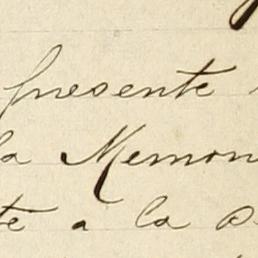 presente
la Memori
te a la